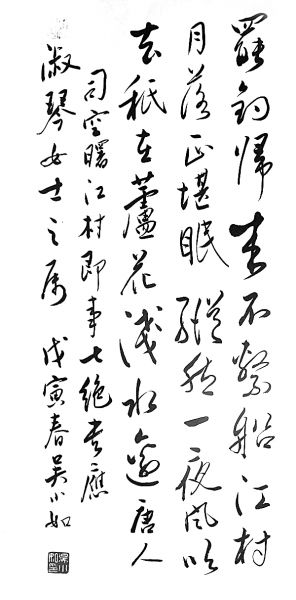 罷釣歸来不繫船江村
月落正堪眠縱然一夜風吹
去秖在蘆花淺水邊唐人
司空曙江村即事七絶書應
淑琴女士之属 戊寅春吴小如